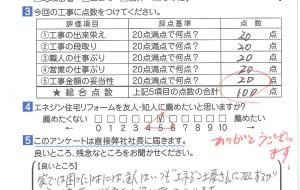 3 今回の工事に点数をつけてください。
評価項目 採点基準 点数
①工事の出来栄え 20点満点で何点? 20 点
②工事の段取り 20点満点で何点? 20 点
③職人の仕事ぶり 20点満点で何点? 20 点
④営業の仕事ぶり 20点満点で何点? 20 点
⑤工事金額の妥当性 20点満点で何点? 20 点
★総合点数 上記5項目の点数の合計 100 点
4 エネジン住宅リフォームを友人・知人に薦めたいと思いますか?
薦めたくない 薦めたい
0 1 2 3 4 5 6 7 8 9 10
5 このアンケートは直接弊社社長に届きます。
良いところ、残念なところをお聞かせください。
ありがとうございます
【良いところ】